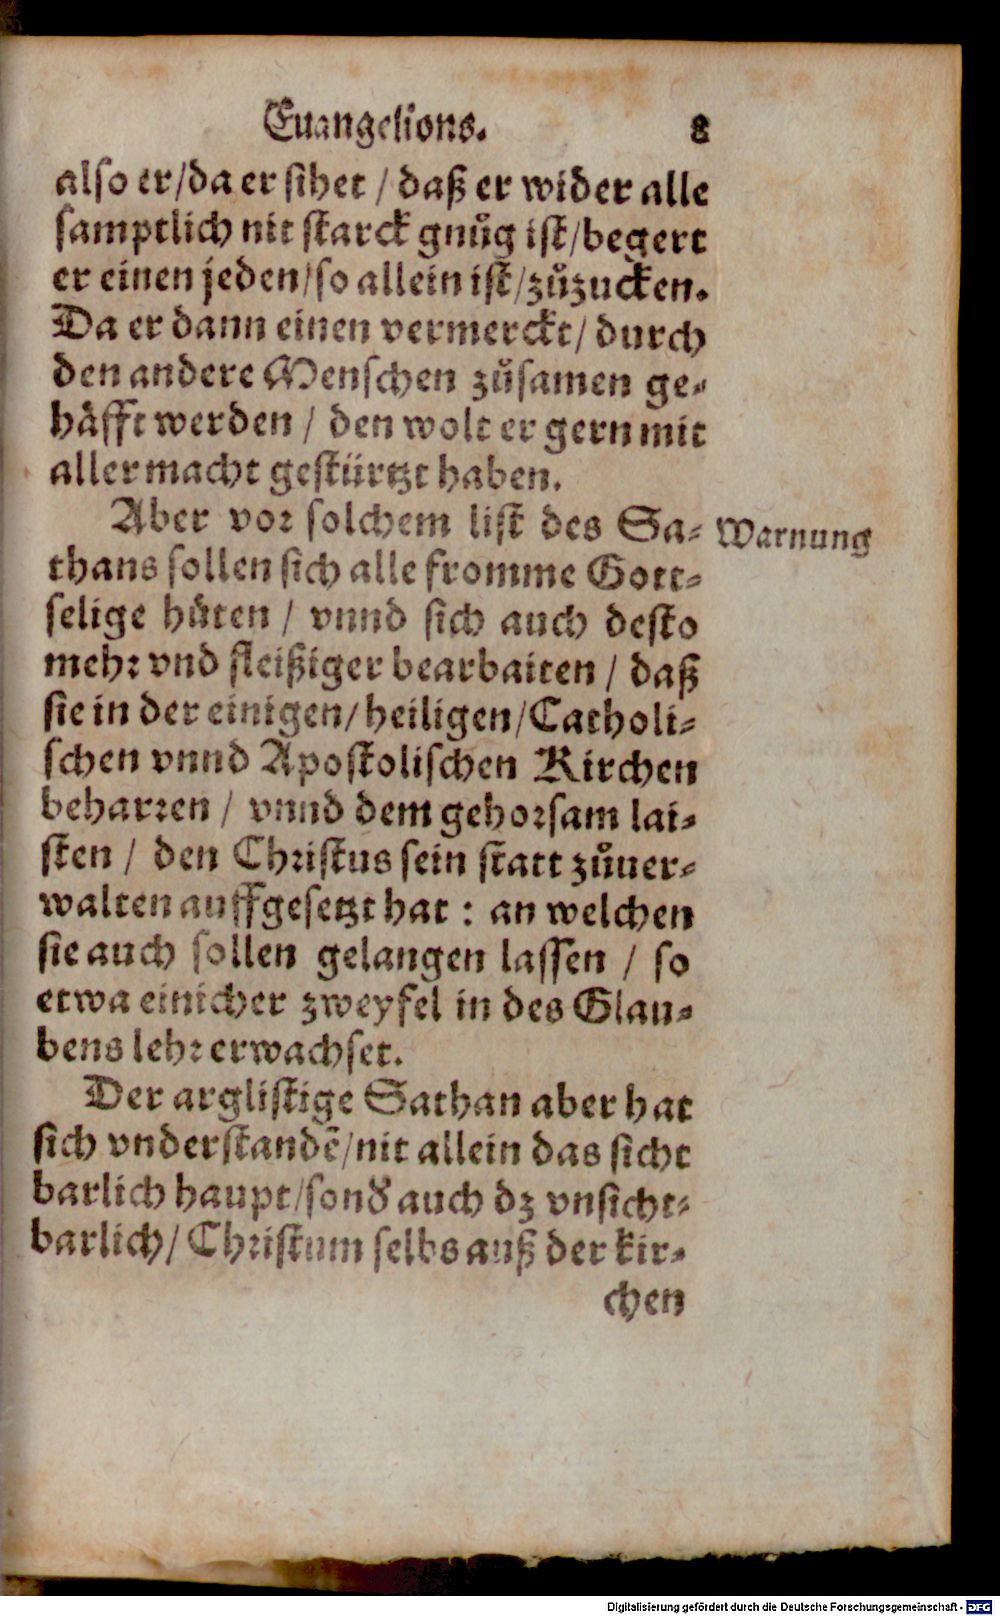 Euangelions. 8
also er/da er sihet / daß er wider alle
samptlich nit starck gnůg ist/begert
er einen jeden/so allein ist/zůzucken.
Da er dann einen vermerckt/ durch
den andere Menschen zůsamen ge-
häfft werden / den wolt er gern mit
aller macht gestürtzt haben.
Aber vor solchem list des Sa-
Warnung
thans sollen sich alle fromme Gott-
selige hüten / vnnd sich auch desto
mehr vnd fleißiger bearbaiten / daß
sie in der einigen/heiligen/Catholi-
schen vnnd Apostolischen Kirchen
beharren / vnnd dem gehorsam lai-
sten / den Christus sein statt zůuer-
walten auffgesetzt hat : an welchen
sie auch sollen gelangen lassen / so
etwa einicher zweyfel in des Glau-
bens lehr erwachset.
Der arglistige Sathan aber hat
sich vnderstandē/nit allein das sicht
barlich haupt/sonď auch dz vnsicht-
barlich/ Christum selbs auß der kir-
chen
Digitalisierung gefördert durch die Deutsche Forschungsgemeinschaft - DFG